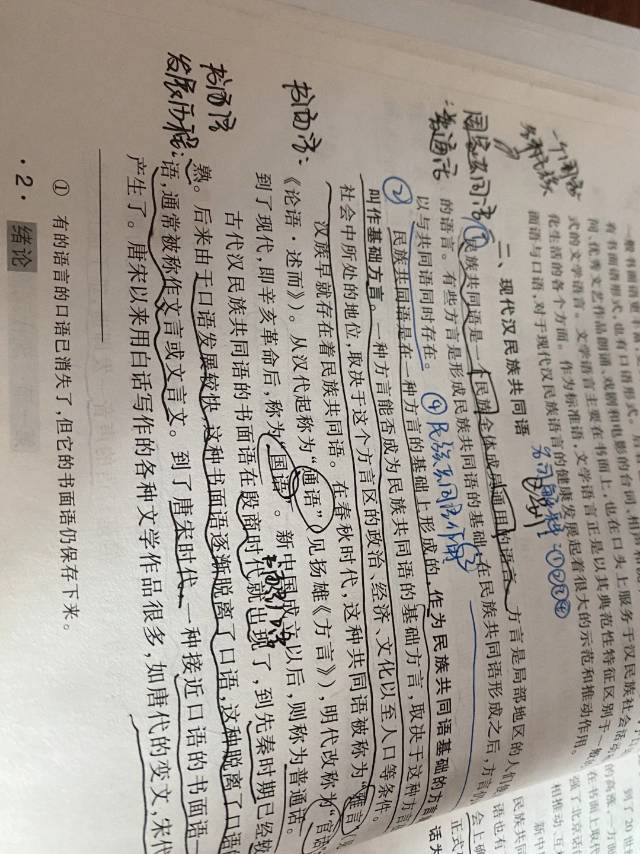 二、现代汉民族共同语
民族共同语是一个民族全体成员通用的语言。方言是局部地区的人们使
的语言。有些方言是形成民族共同语的基础,在民族共同语形成之后,方言仍
以与共同语同时存在。
民族共同语是在一种方言的基础上形成的,作为民族共同语基础的方言
叫作基础方言。一种方言能否成为民族共同语的基础方言,取决于这种方言
社会中所处的地位,取决于这个方言区的政治、经济、文化以至人口等条件。
汉族早就存在着民族共同语。在春秋时代,这种共同语被称为“雅言”
《论语·述而》)。从汉代起称为“通语”(见扬雄《方言》),明代改称为“官话
到了现代,即辛亥革命后,称为“国语”。新中国成立以后,则称为普通话。
古代汉民族共同语的书面语在殷商时代就出现了,到先秦时期已经
熟。后来由于口语发展较快,这种书面语逐渐脱离了口语,这种脱离了口语
语,通常被称作文言或文言文。到了唐宋时代,一种接近口语的书面语一
产生了。唐宋以来用白话写作的各种文学作品很多,如唐代的变文、宋代
① 有的语言的口语已消失了,但它的书面语仍保存下来。
·2· 绪论
同,优秀文艺作品朗诵、戏剧和电影的台词、相声
式的文学语言。文学语言主要在书面上,也在口头上服务于汉民族社会
化生活的各个方面。作为标准语,文学语言正是以其典范性特征区别于一般
面语与口语,对于现代汉民族语言的健康发展起着很大的示范和推动作用。
一个国家
多种民族
国家共同语
:普通话
① ②
④民族共同语作用
名词解释①②④
书面语:
书面语
发展历程: